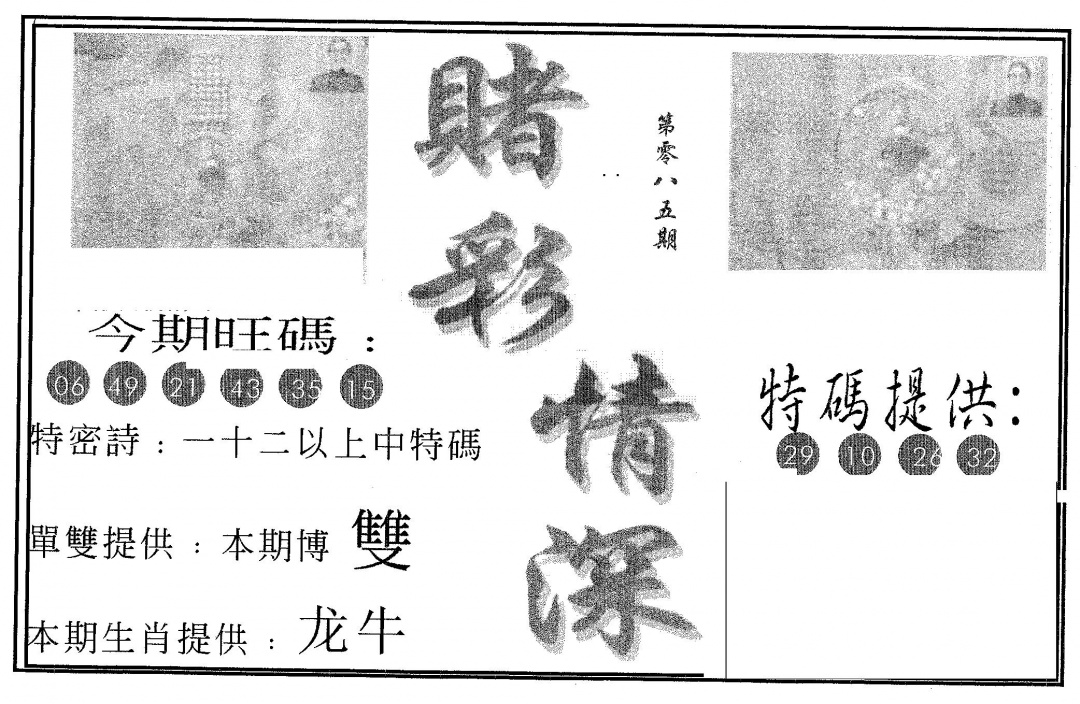 賭彩情深
第零八五期
今期旺碼：
06 49 21 43 35 15
特密詩：一十二以上中特碼
單雙提供：本期博 雙
本期生肖提供：龙牛
特碼提供：
29 10 26 32